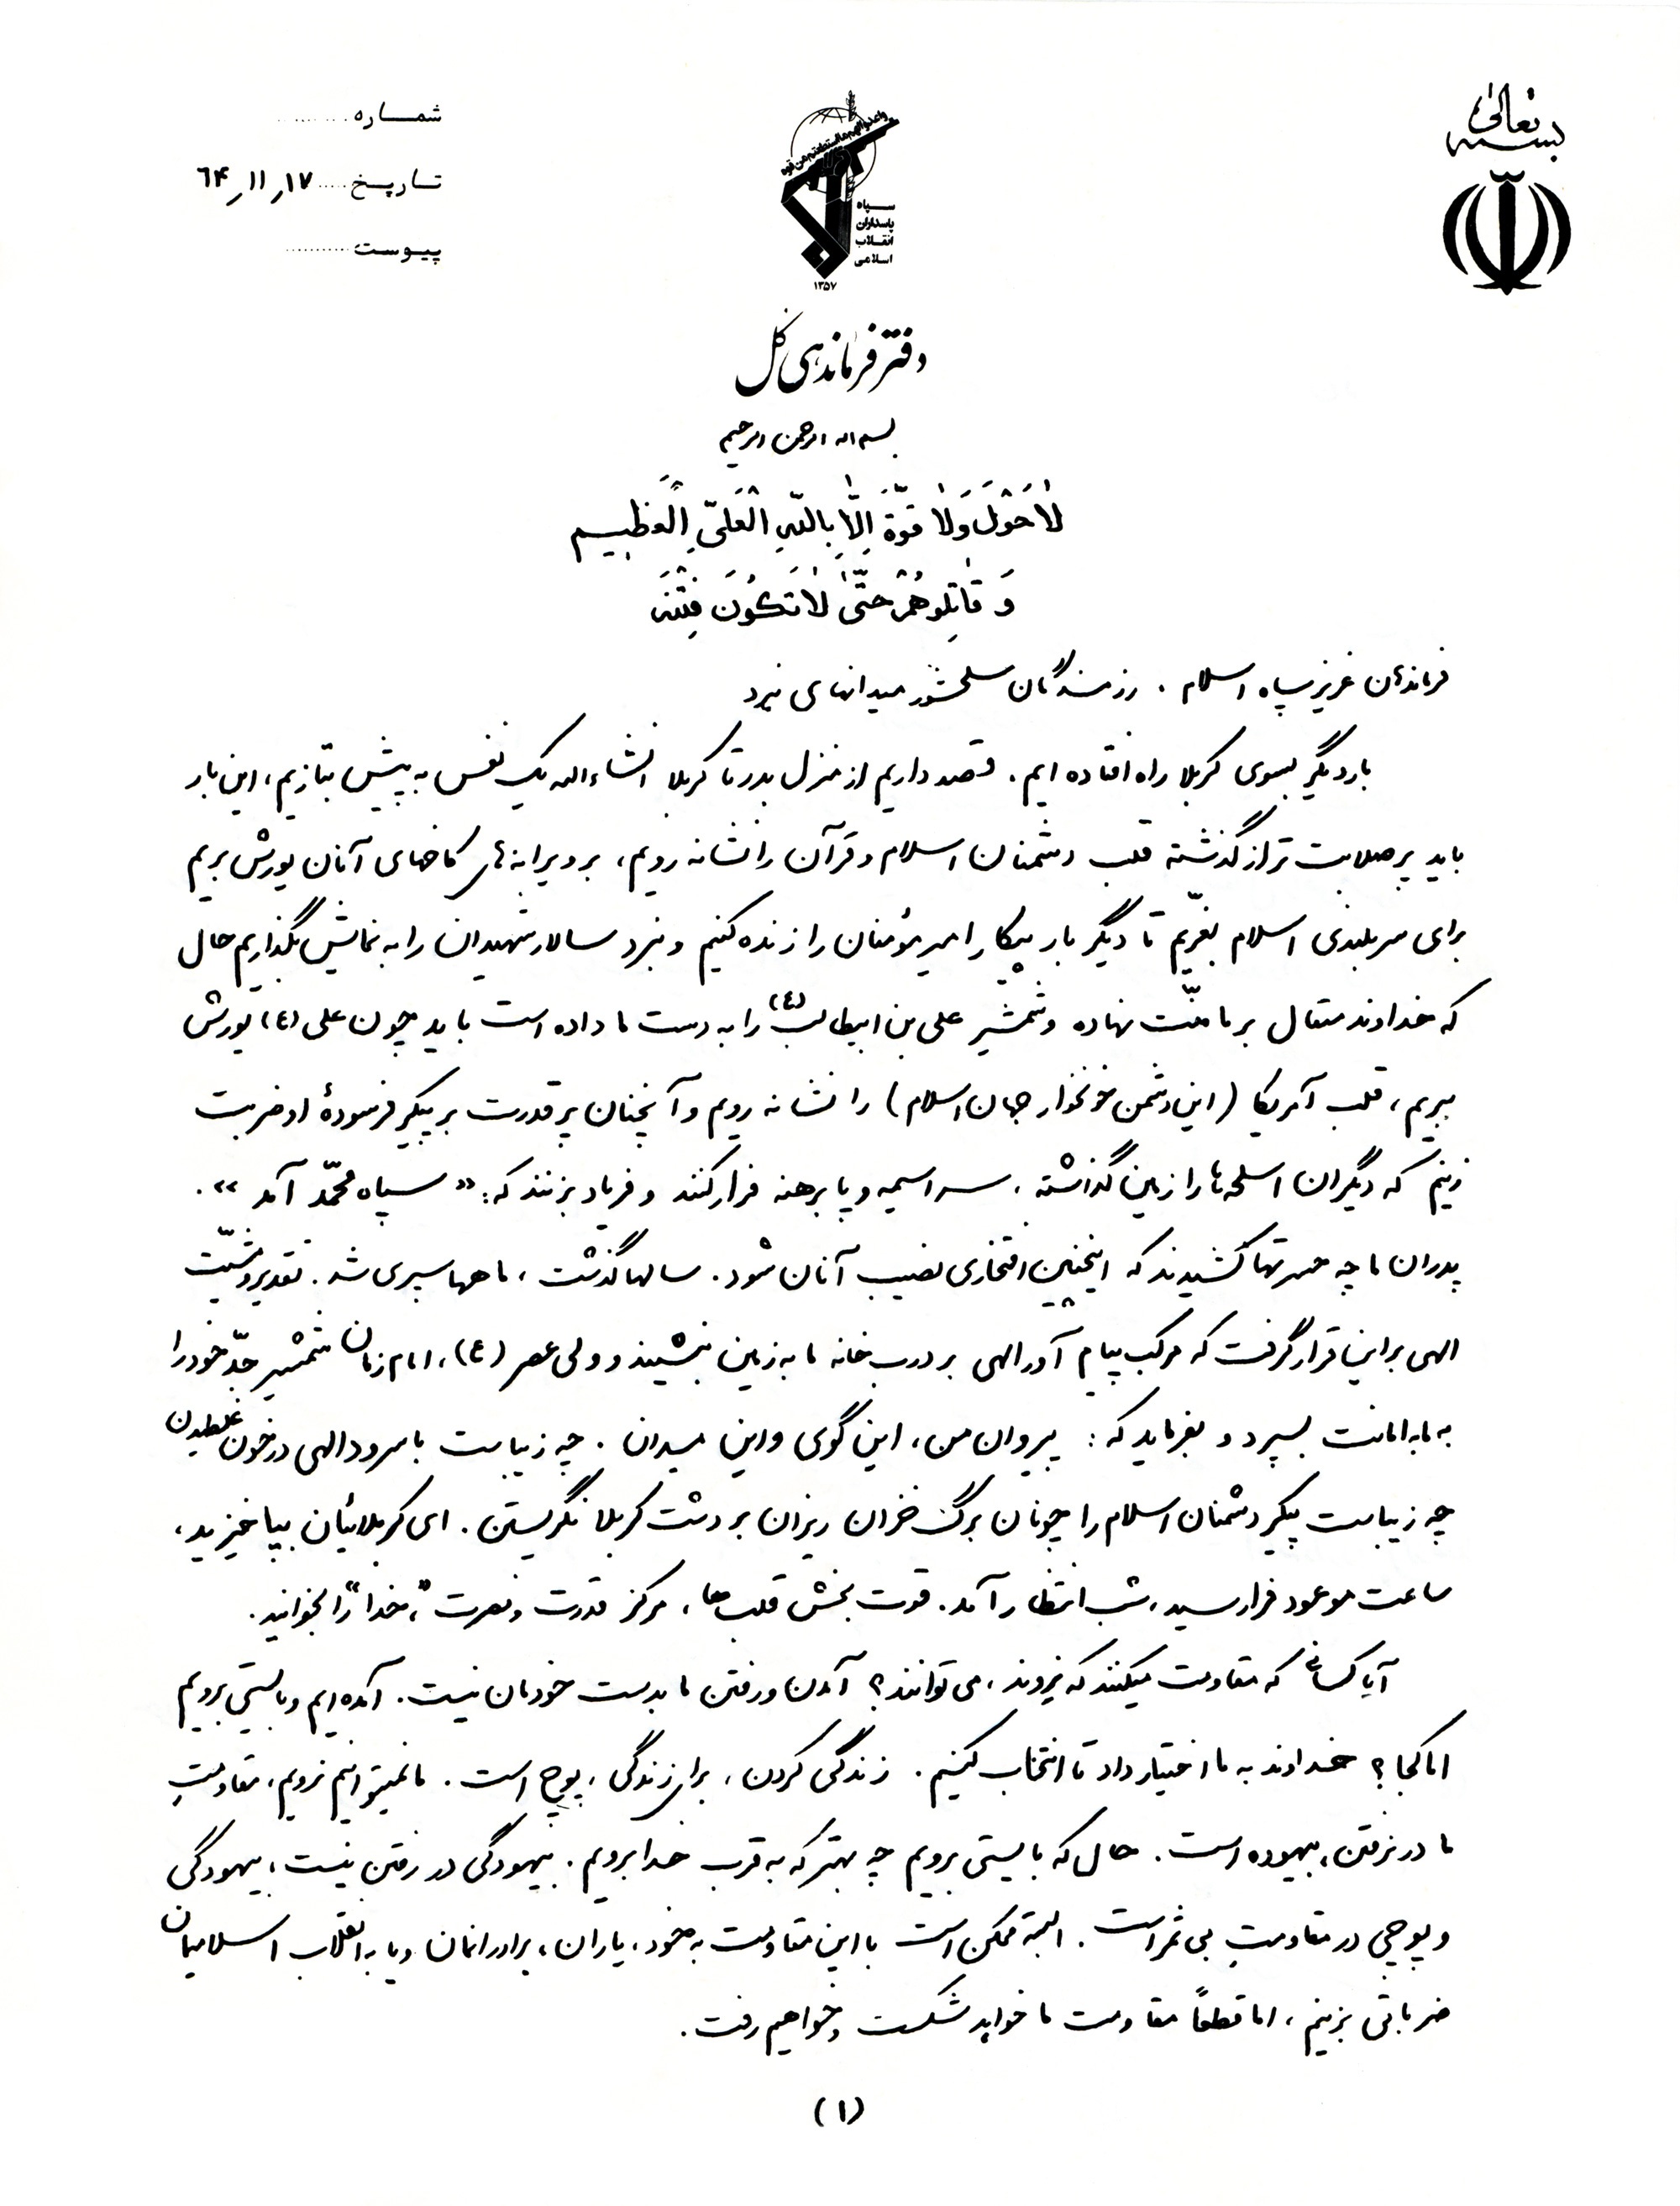 بسمه تعالی
شماره ..........
تاریخ ..... ۶۴٫۱۱٫۱۷
پیوست ..........
واعدوا لهم ما استطعتم من قوة
سپاه
پاسداران
انقلاب
اسلامی
۱۳۵۷
دفتر فرماندهی کل
بسم اله الرحمن الرحیم
لاٰ حَوْلَ وَلاٰ قُوَّةَ اِلّاٰ بِاللّهِ الْعَلیِّ الْعَظیم
وَ قٰاتِلوهُمْ حَتّیٰ لاٰ تَکُونَ فِتْنَه
فرماندهان عزیز سپاه اسلام ، رزمندگان سلحشور میدانهای نبرد
بار دیگر بسوی کربلا راه افتاده ایم . قصد داریم از منزل بدر تا کربلا انشاءاله یک نفس به پیش بتازیم ، این بار
باید پر صلابت تر از گذشته قلب دشمنان اسلام و قرآن را نشانه رویم ، بر ویرانه های کاخهای آنان یورش بریم
برای سربلندی اسلام بغرّیم تا دیگر بار پیکار امیر مؤمنان را زنده کنیم و نبرد سالار شهیدان را به نمایش بگذاریم حال
که خداوند متعال بر ما منّت نهاده و شمشیر علی بن ابیطالب (ع) را به دست ما داده است باید چون علی (ع) یورش
ببریم ، قلب آمریکا ( این دشمن خونخوار جهان اسلام ) را نشانه رویم و آنچنان پر قدرت بر پیکر فرسودهٔ او ضربت
زنیم که دیگران اسلحه ها را زمین گذاشته ، سراسیمه و پا برهنه فرار کنند و فریاد بزنند که : « سپاه محمّد آمد » .
پدران ما چه حسرتها کشیدند که اینچنین افتخاری نصیب آنان شود . سالها گذشت ، ماهها سپری شد . تقدیر و مشیّت
الهی بر این قرار گرفت که مرکب پیام آور الهی بر درب خانه ما به زمین بنشیند و ولی عصر (ع) ، امام زمان شمشیر جدّ خود را
به ما به امانت بسپرد و بفرماید که : پیروان من ، این گوی و این میدان . چه زیباست با سرود الهی در خون غلطیدن
چه زیباست پیکر دشمنان اسلام را چونان برگ خزان ریزان بر دشت کربلا نگریستن . ای کربلائیان بپا خیزید ،
ساعت موعود فرا رسید ، شب انتظار آمد . قوت بخش قلب ها ، مرکز قدرت و نصرت ، "خدا" را بخوانید .
آیا کسانی که مقاومت میکنند که نروند ، می توانند ؟ آمدن و رفتن ما بدست خودمان نیست . آمده ایم و بایستی برویم
اما کجا ؟ خداوند به ما اختیار داد تا انتخاب کنیم . زندگی کردن ، برای زندگی ، پوچ است . ما نمیتوانیم نرویم ، مقاومتِ
ما در نرفتن ، بیهوده است . حال که بایستی برویم چه بهتر که به قرب خدا برویم . بیهودگی در رفتن نیست ، بیهودگی
و پوچی در مقاومتِ بی ثمر است . البته ممکن است با این مقاومت به خود ، یاران ، برادرانمان و یا به انقلاب اسلامیمان
ضرباتی بزنیم ، اما قطعاً مقاومت ما خواهد شکست و خواهیم رفت .
(۱)